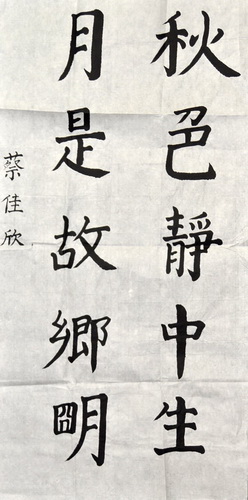 秋色靜中生
月是故鄉明
蔡佳欣